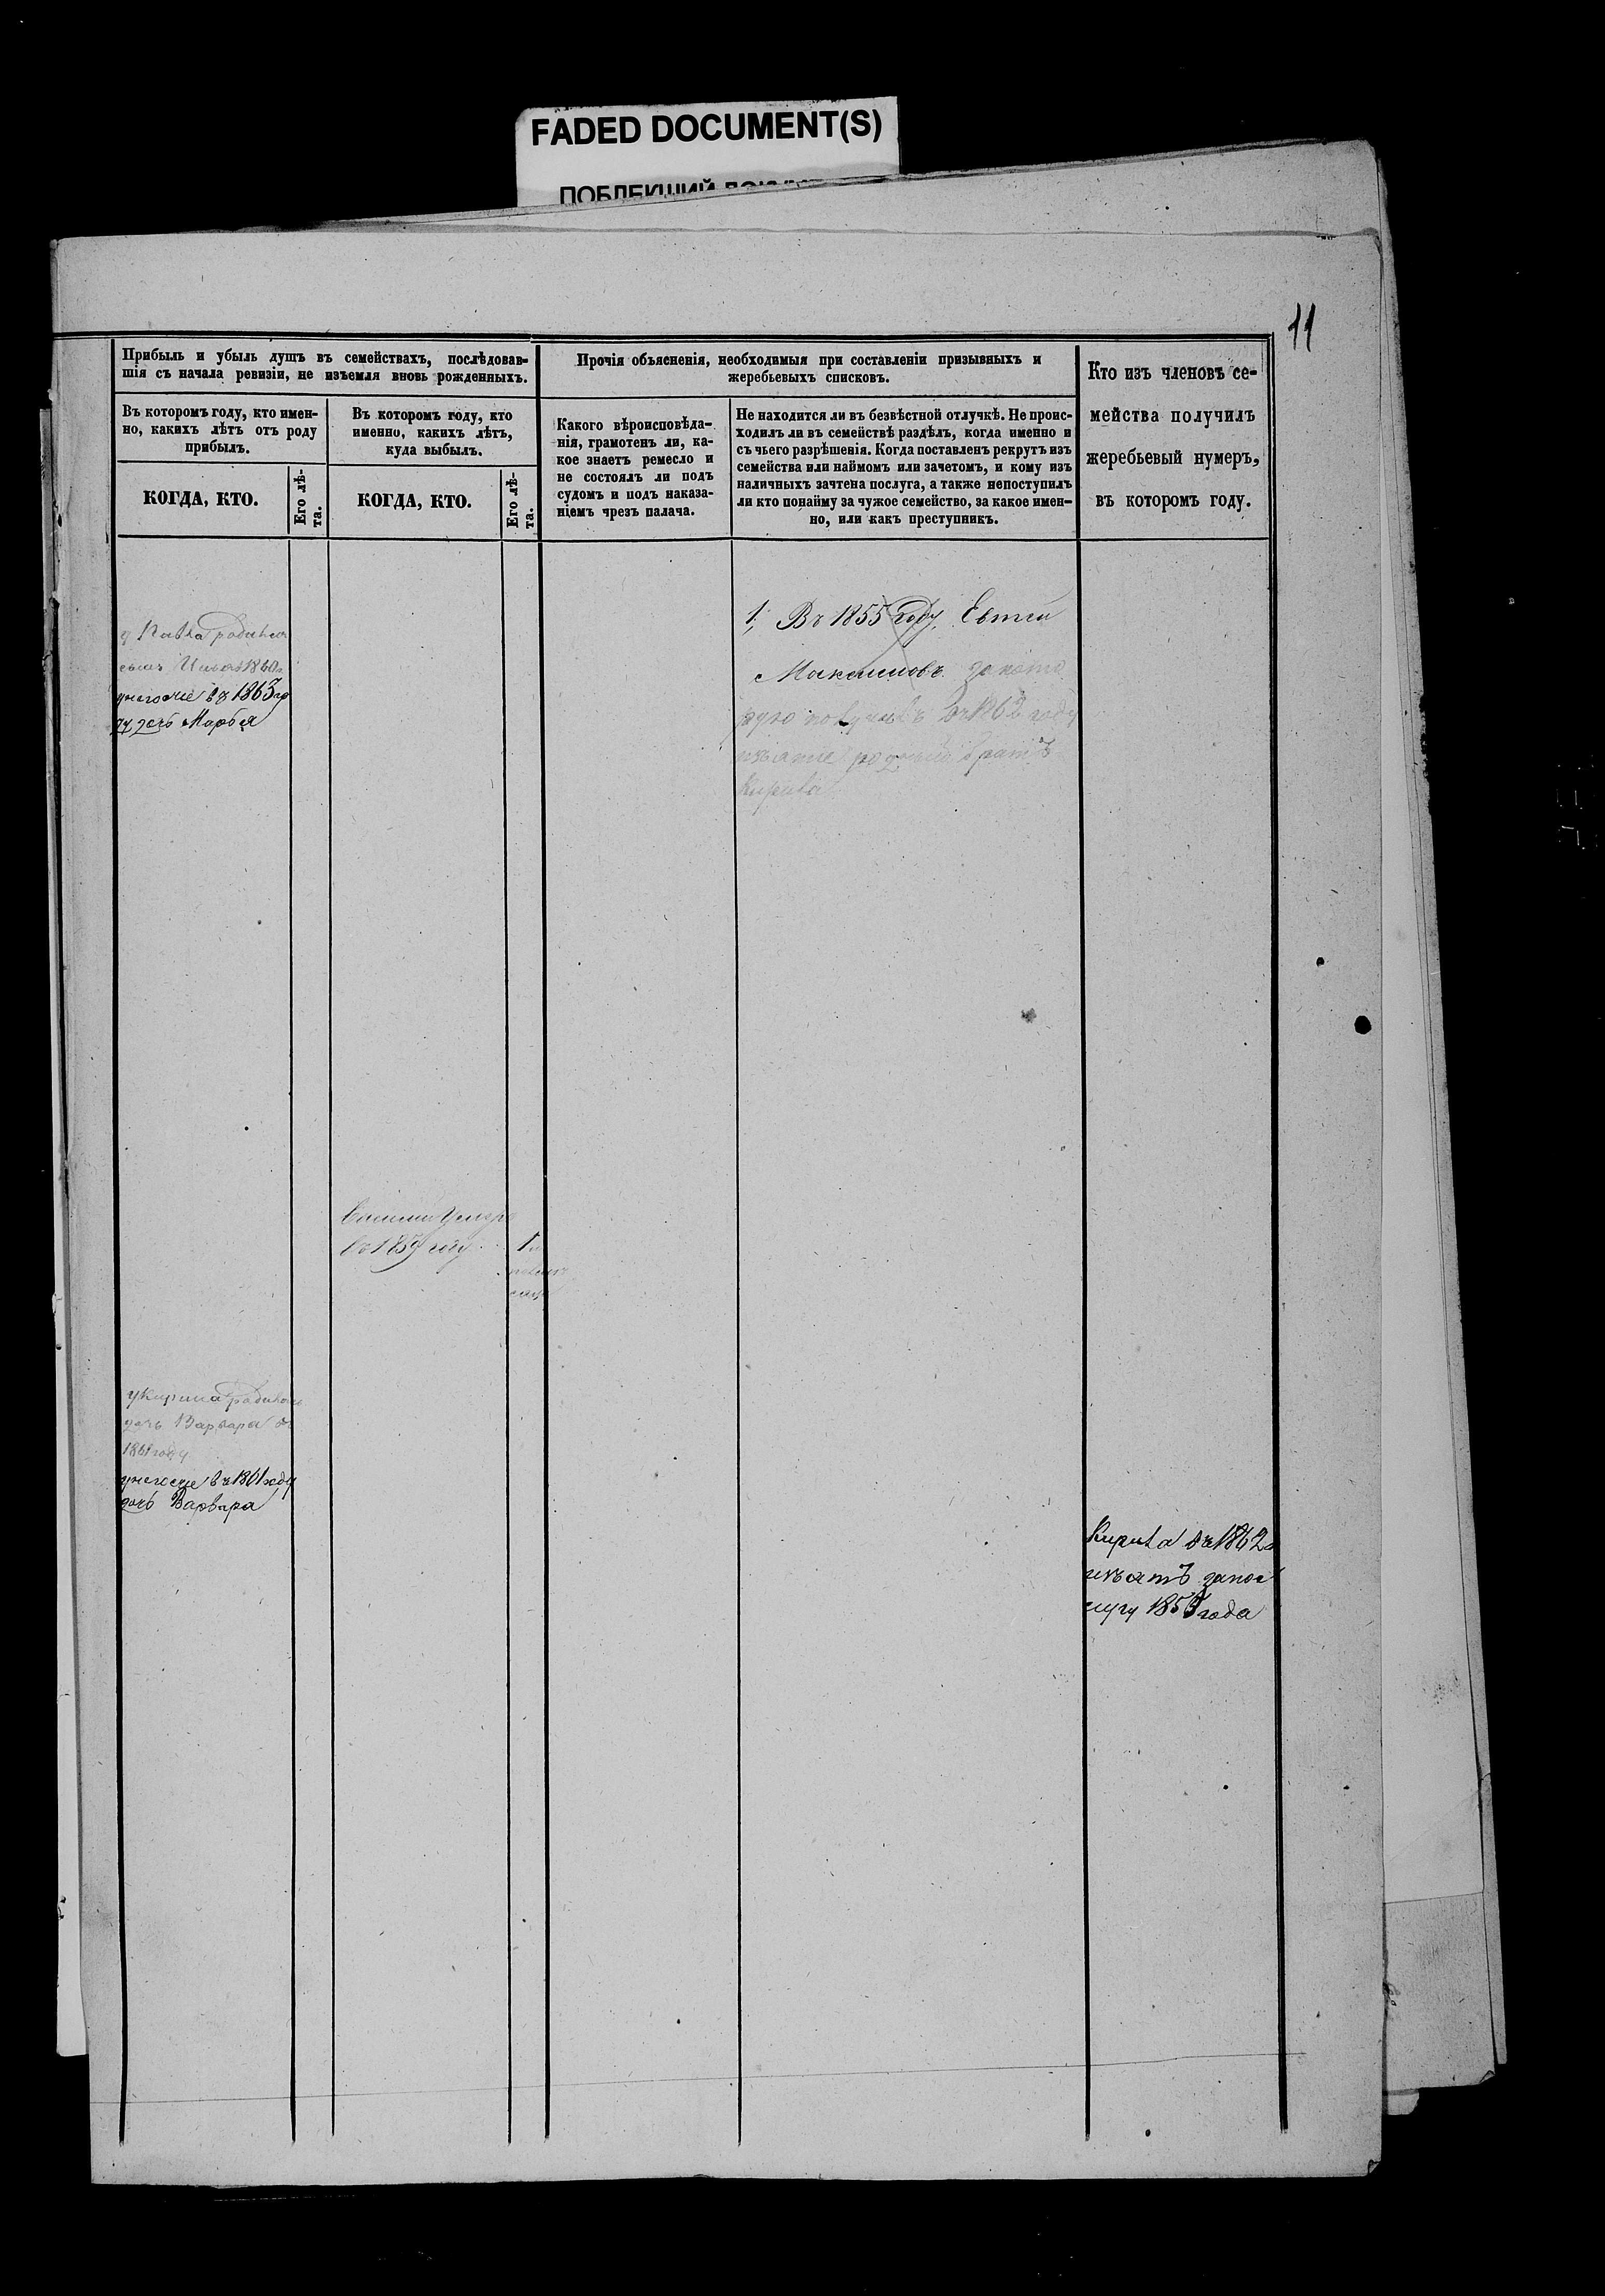 FADED DOCUMENT(S)
11
Прибыль и убыль душъ въ семействахъ, послѣдовав-
шія съ начала ревизіи, не изъемля вновь рожденныхъ.
Въ которомъ году, кто имен-
но, какихъ лѣтъ отъ роду
прибылъ.
КОГДА, КТО.
Его лѣ-
та.
Въ которомъ году, кто
именно, какихъ лѣтъ,
куда выбылъ.
КОГДА, КТО.
Его лѣ-
та.
Прочія объясненія, необходимыя при составленіи призывныхъ и
жеребьевыхъ списковъ.
Какого вѣроисповѣда-
нія, грамотенъ ли, ка-
кое знаетъ ремесло и
не состоялъ ли подъ
судомъ и подъ наказа-
ніемъ чрезъ палача.
Не находится ли въ безвѣстной отлучкѣ. Не проис-
ходилъ ли въ семействѣ раздѣлъ, когда именно и
съ чьего разрѣшенія. Когда поставленъ рекрутъ изъ
семейства или наймомъ или зачетомъ, и кому изъ
наличныхъ зачтена послуга, а также непоступилъ
ли кто понайму за чужое семейство, за какое имен-
но, или какъ преступникъ.
Кто изъ членовъ се-
мейства получилъ
жеребьевый нумеръ,
въ которомъ году.
у Павла родился
сынъ 1860
унегоже въ 1863 го
ду дочь Марѳа
1, Въ 1855 году Евтей
Максимовъ за кото
рую получилъ въ 1862 году
изъятіе родной братъ
Кирила
въ 1859 году 1
у Кирила родилась
дочь Варвара въ
1861 году
унегоже въ 1861 году
дочь Варвара
Кирила въ 1862
изъятъ запос
лугу 1855 года